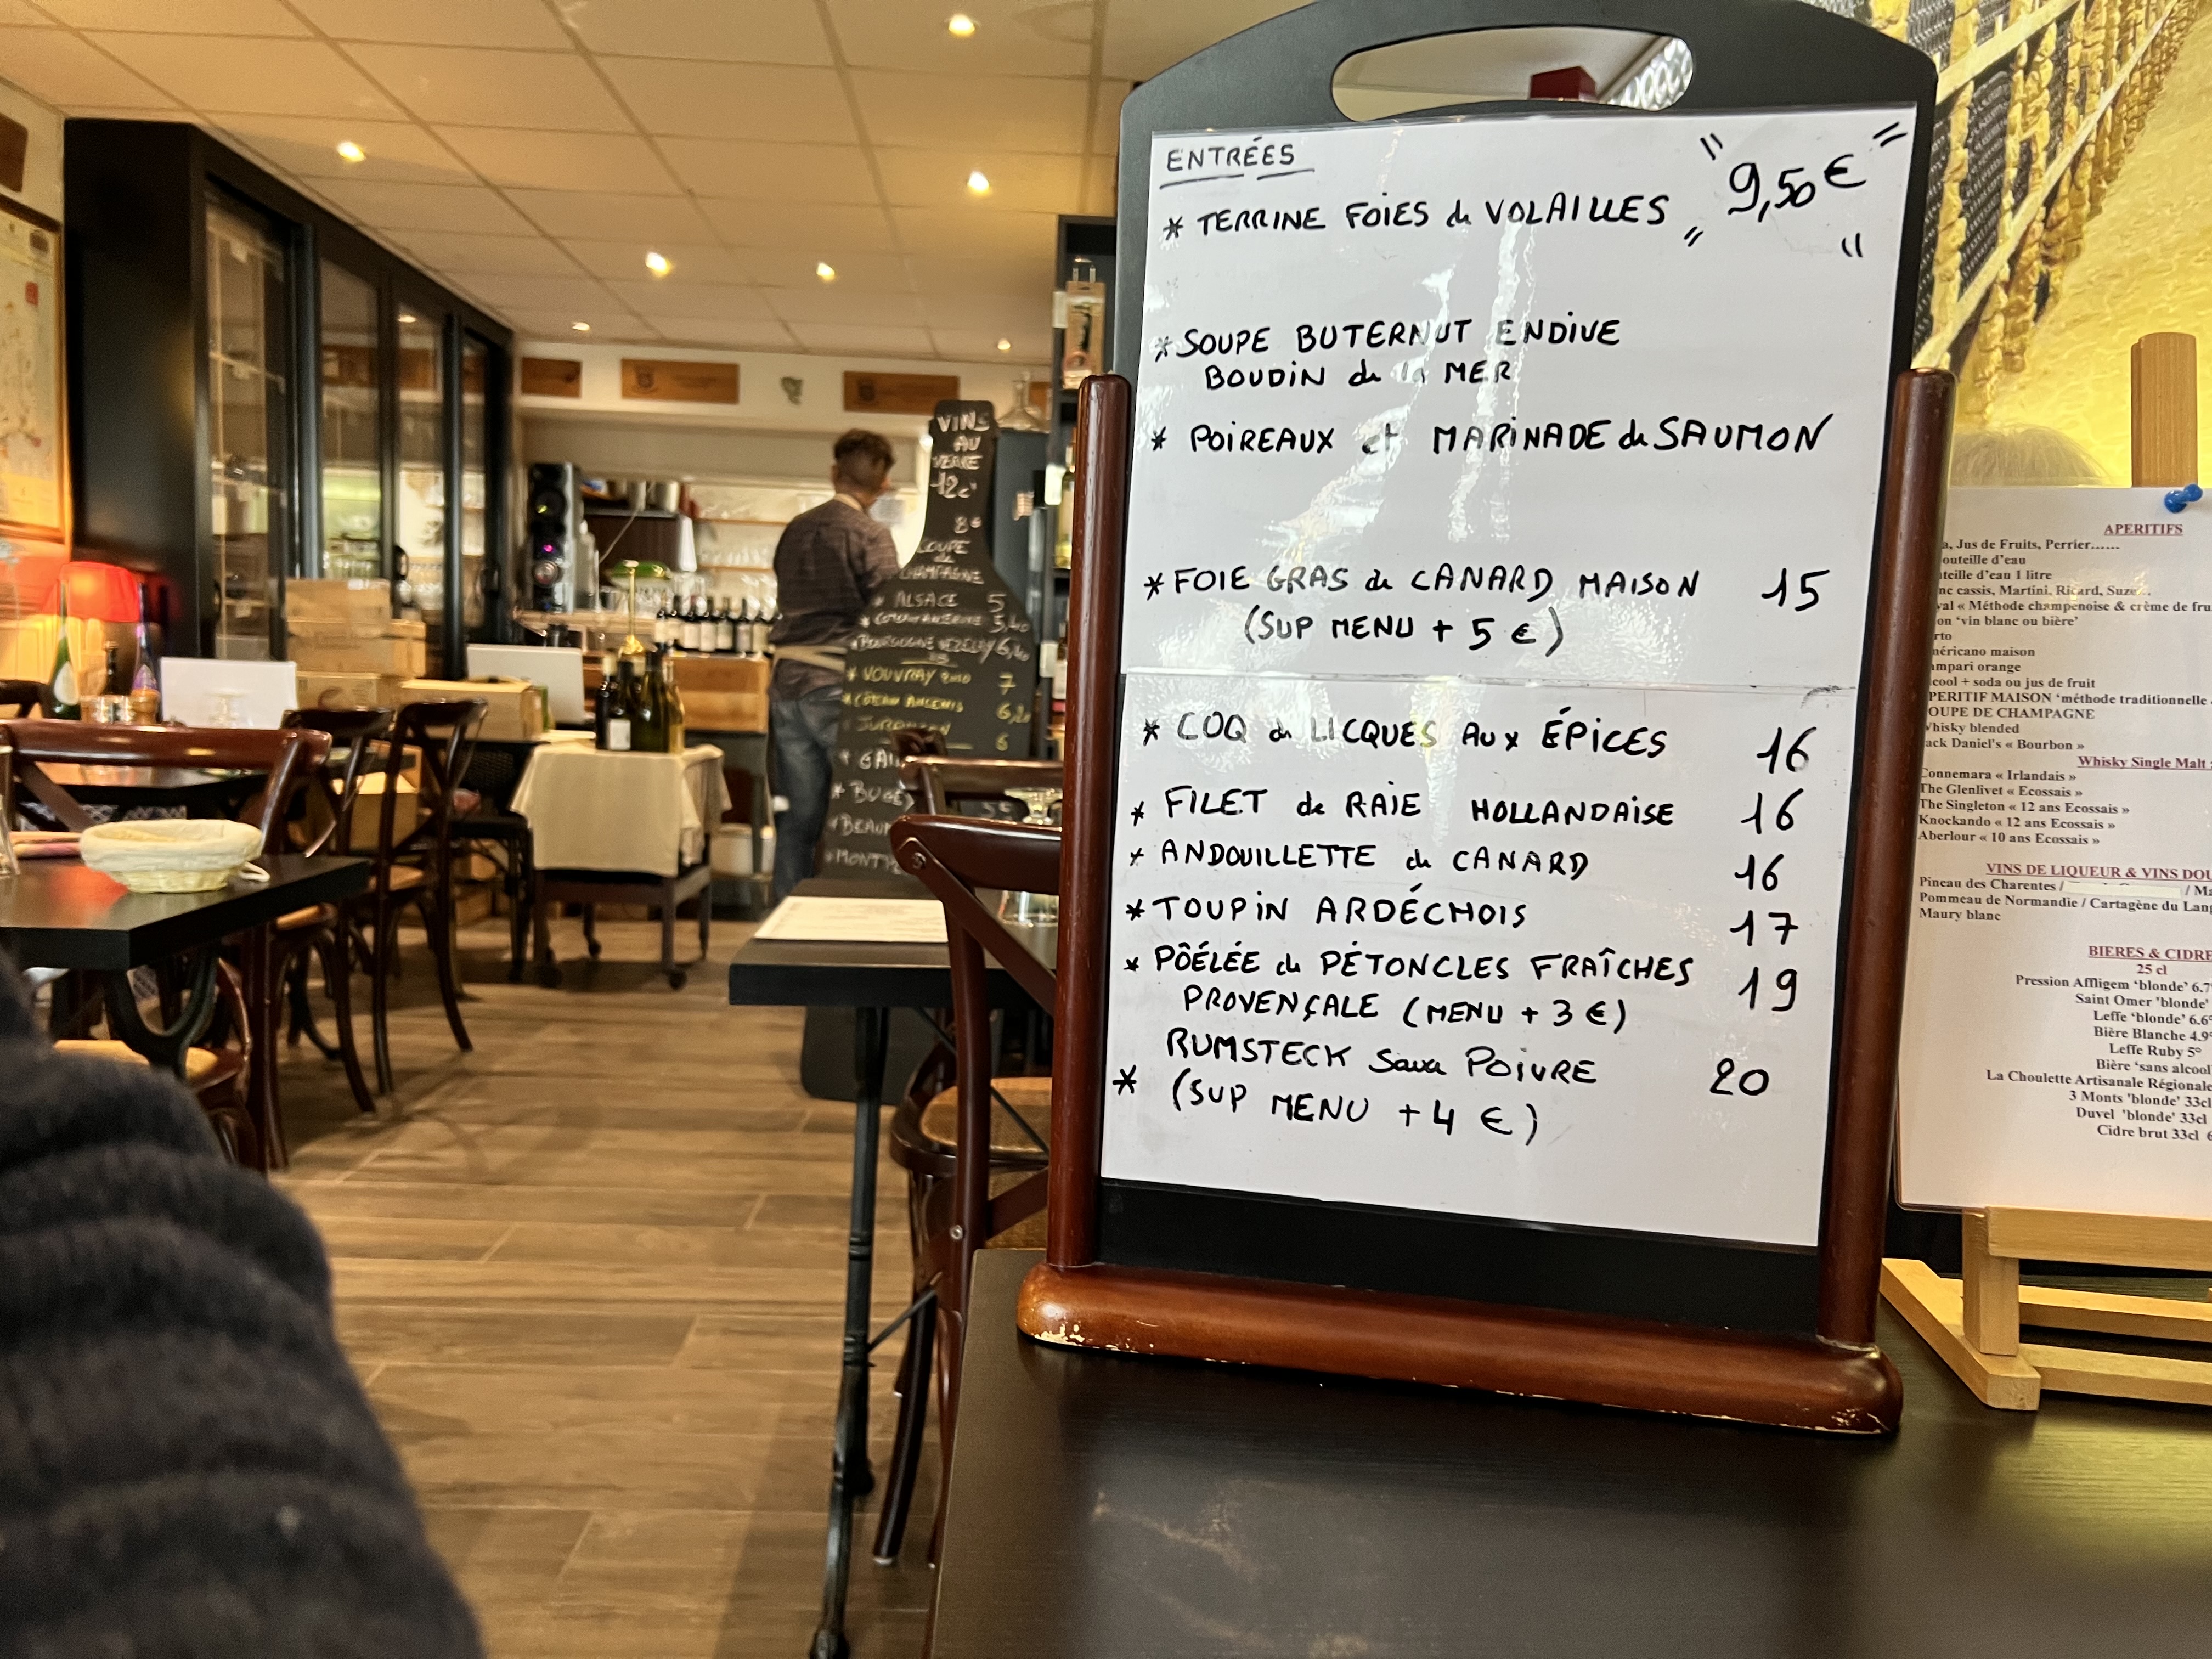 ENTRÉES
9,50 €
* TERRINE FOIES de VOLAILLES
* SOUPE BUTERNUT ENDIVE
BOUDIN de la MER
* POIREAUX et MARINADE de SAUMON
* FOIE GRAS de CANARD MAISON 15
(SUP MENU + 5 €)
* COQ de LICQUES AUX ÉPICES 16
* FILET de RAIE HOLLANDAISE 16
* ANDOUILLETTE de CANARD 16
* TOUPIN ARDÉCHOIS 17
* PÔÉLÉE de PÉTONCLES FRAÎCHES 19
PROVENÇALE (MENU + 3 €)
RUMSTECK Sauce POIVRE 20
* (SUP MENU + 4 €)
VINS
AU
VERRE
12c
8€
COUPE
de
CHAMPAGNE
* ALSACE 5
VOUVRAY 7
6
APERITIFS
Jus de Fruits, Perrier......
outeille d'eau
teille d'eau 1 litre
nc cassis, Martini, Ricard, Suze...
« Méthode champenoise & crème de fru
'vin blanc ou bière'
méricano maison
mpari orange
cool + soda ou jus de fruit
PERITIF MAISON 'méthode traditionnelle
OUPE DE CHAMPAGNE
Whisky blended
ack Daniel's « Bourbon »
Whisky Single Malt
Connemara « Irlandais »
The Glenlivet « Ecossais »
The Singleton « 12 ans Ecossais »
Knockando « 12 ans Ecossais »
Aberlour « 10 ans Ecossais »
VINS DE LIQUEUR & VINS DOU
Pineau des Charentes / / Ma
Pommeau de Normandie / Cartagène du Lang
Maury blanc
BIERES & CIDRE
25 cl
Pression Affligem 'blonde' 6.7°
Saint Omer 'blonde'
Leffe 'blonde' 6.6°
Bière Blanche 4.9°
Leffe Ruby 5°
Bière 'sans alcool
La Choulette Artisanale Régionale
3 Monts 'blonde' 33cl
Duvel 'blonde' 33cl
Cidre brut 33cl